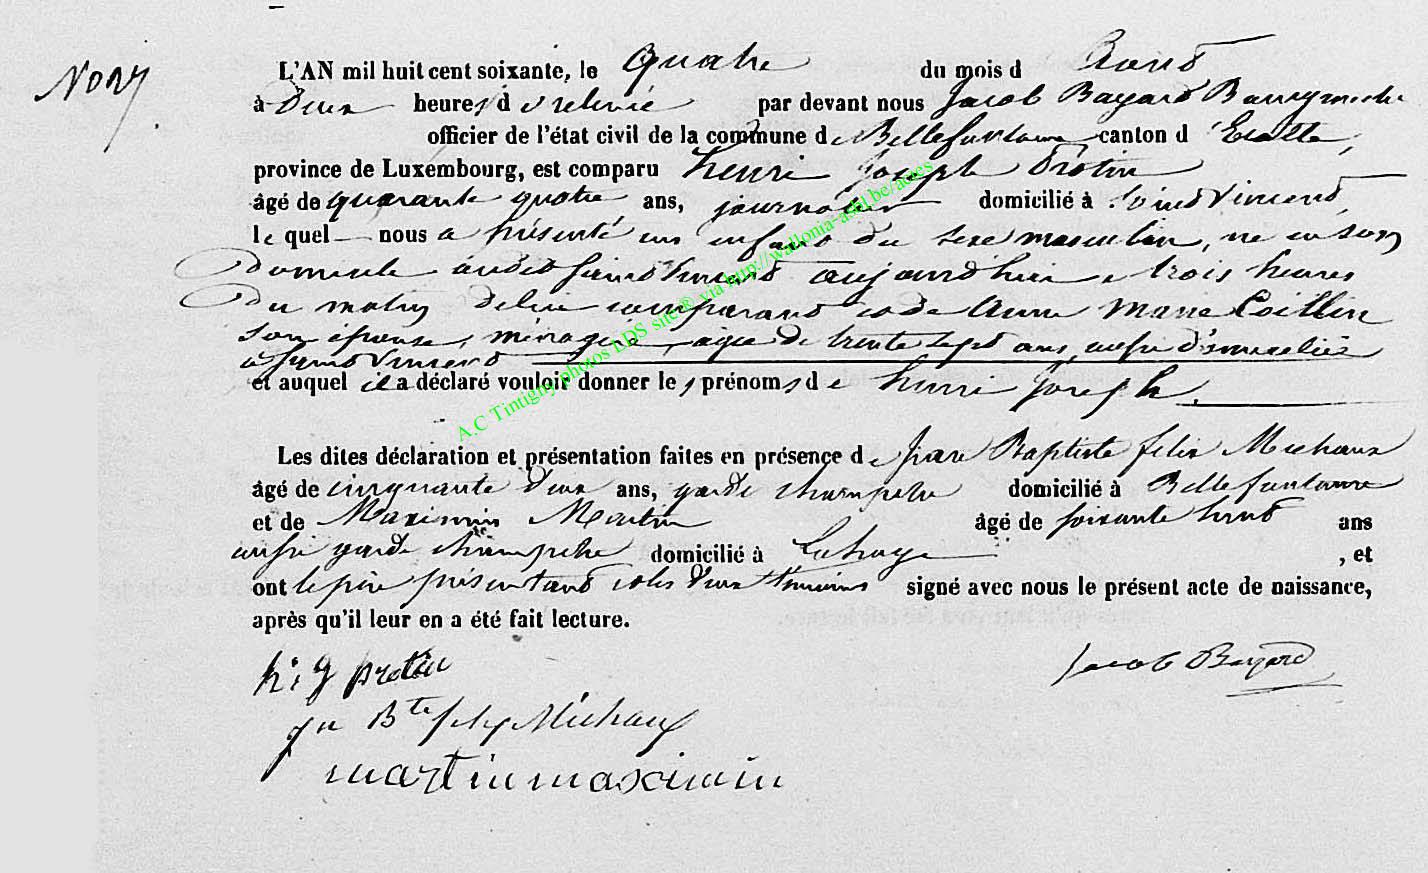 L'AN mil huit cent soixante, le quatre du mois d Aout
à deux heures d e relevée par devant nous Jacob Bayard Bourgmestre
officier de l'état civil de la commune d e Bellefontaine canton d' Etalle,
province de Luxembourg, est comparu henri joseph Protin
âgé de quarante quatre ans, journalier domicilié à Saint Vincent,
le quel nous a présenté un enfant du sexe masculin, né en son
Domicile audit Saint Vincent aujourd'hui a trois heures
Du matin de lui comparant et de Anne Marie
son épouse, ménagère, agée de trente sept ans, aussi domiciliée
a Saint Vincent
et auquel il a déclaré vouloir donner le s prénom s d e henri joseph.
Les dites déclaration et présentation faites en présence d e Jean Baptiste felix Michaux
âgé de cinquante deux ans, garde champetre domicilié à Bellefontaine
et de Maximin Martin âgé de soixante huit ans
aussi garde champetre domicilié à Lahage , et
ont le père présentant et les deux témoins signé avec nous le présent acte de naissance,
après qu'il leur en a été fait lecture.
h; j protin
Jacob Bayard
jn Bte felix Michaux
martin maximin
A.C Tintigny photos LDS site® via http://wallonia-asbl.be/actes